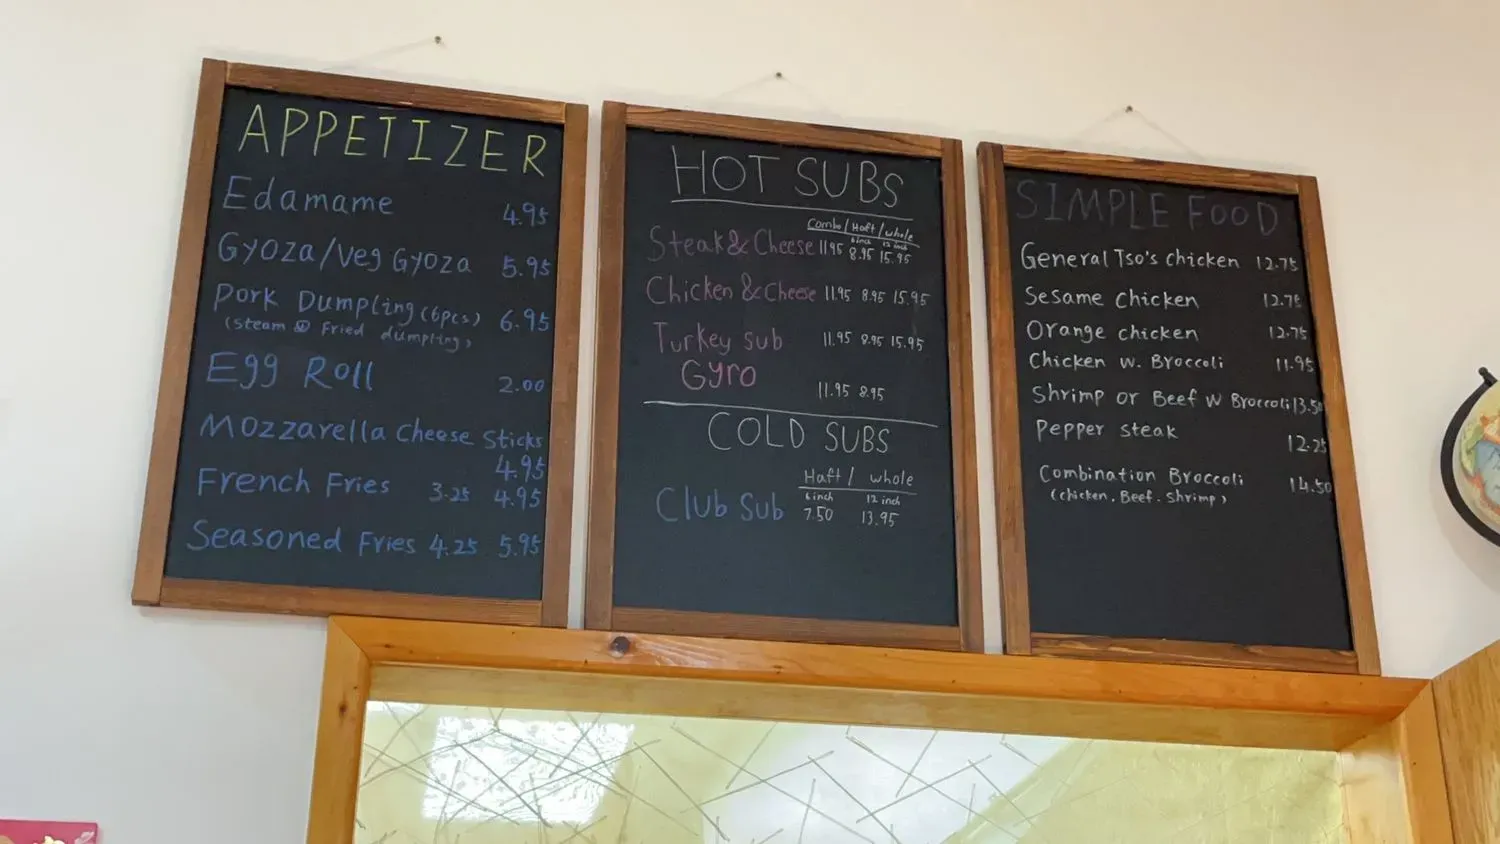 APPETIZER
Edamame 4.95
Gyoza/Veg Gyoza 5.95
Pork Dumpling (6pcs) 6.95
(Steam or Fried dumpling)
Egg Roll 2.00
Mozzarella Cheese Sticks
4.95
French Fries 3.25 4.95
Seasoned Fries 4.25 5.95
HOT SUBS
Combo/Haft/whole
6inch 12 inch
Steak&Cheese 11.95 8.95 15.95
Chicken &Cheese 11.95 8.95 15.95
Turkey sub 11.95 8.95 15.95
Gyro 11.95 8.95
COLD SUBS
Haft/ whole
6inch 12 inch
Club Sub 7.50 13.95
SIMPLE FOOD
General Tso's chicken 12.75
Sesame chicken 12.75
Orange chicken 12.75
Chicken w. Broccoli 11.95
Shrimp or Beef W Broccoli 13.50
Pepper steak 12.25
Combination Broccoli 14.50
(chicken. Beef. Shrimp)